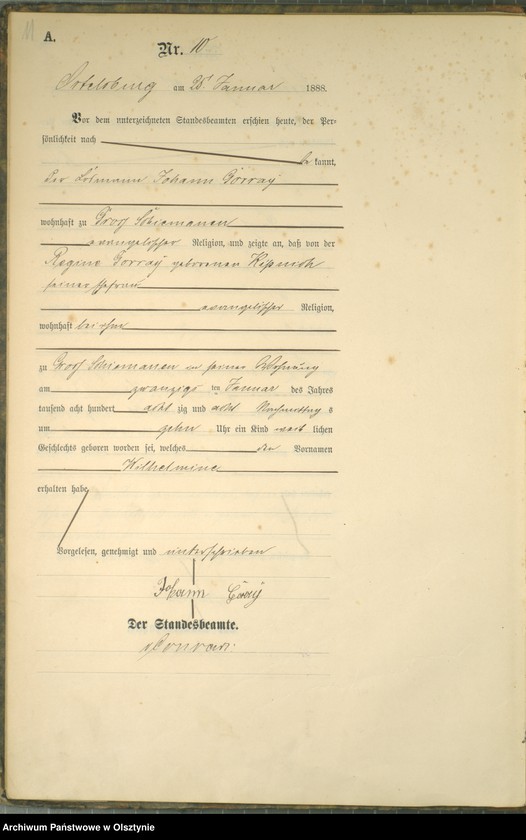 11
A.
Nr. 10
Ortelsburg am 25 Januar 1888.
Vor dem unterzeichneten Standesbeamten erschien heute, der Per-
sönlichkeit nach
be kannt,
der Losmann Johann Gorray
wohnhaft zu Groß Schiemanen
evangelischer Religion, und zeigte an, daß von der
Regine Gorray geborenen
seiner Ehefrau
evangelischer Religion,
wohnhaft bei ihm
zu Groß Schiemanen in seiner Wohnung
am zwanzigs ten Januar des Jahres
tausend acht hundert acht zig und acht Nachmittag s
um zehn Uhr ein Kind weib lichen
Geschlechts geboren worden sei, welches den Vornamen
Wilhelmine
erhalten habe
Vorgelesen, genehmigt und unterschrieben
Johann
Der Standesbeamte.
Archiwum Państwowe w Olsztynie